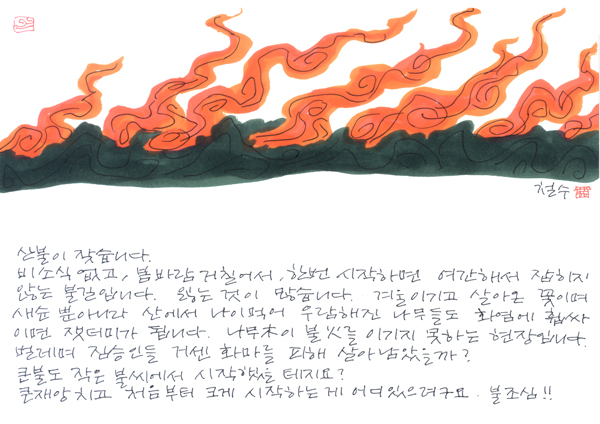 철수
산불이 잦습니다.
비소식 없고, 봄바람 거칠어서, 한번 시작하면 여간해서 잡히지
않는 불길입니다. 잃는 것이 많습니다. 겨울이기고 살아온 꽃이며
새순 뿐아니라 산에서 나이먹어 우람해진 나무들도 화염에 휩싸
이면 잿더미가 됩니다. 나무木이 불火를 이기지 못하는 현장입니다.
벌레며 짐승인들 거센 화마를 피해 살아남았을까?
큰불도 작은 불씨에서 시작했을 테지요?
큰재앙치고 처음부터 크게 시작하는게 어디있으려구요. 불조심!!